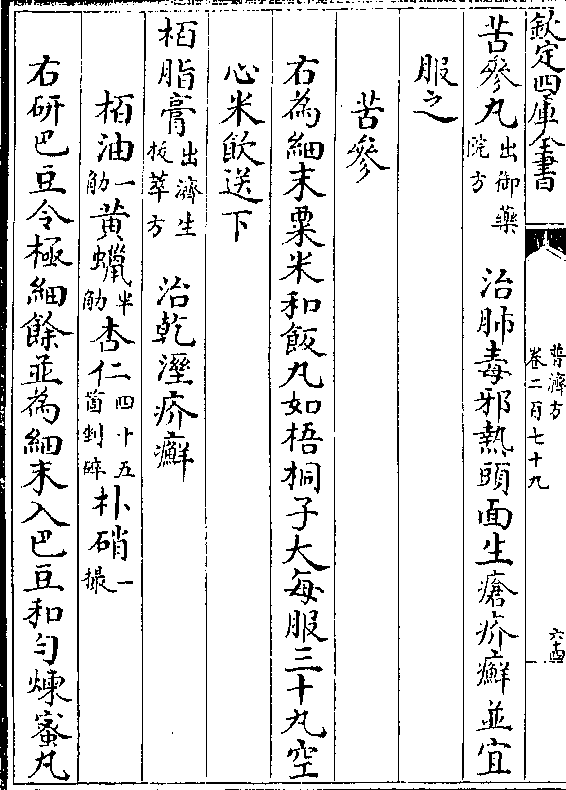 欽定四庫全書
普濟方
卷二百七十九
六十四
苦參丸出御藥院方 治肺毒邪熱頭面生瘡疥癬並宜
服之
苦參
右為細末粟米和飯丸如梧桐子大每服三十丸空
心米飲送下
栢脂膏出濟生拔萃方 治乾溼疥癬
栢油一觔黃蠟半觔杏仁四十五箇剉碎朴硝一撮
右研巴豆令極細餘並為細末入巴豆和勻煉蜜丸